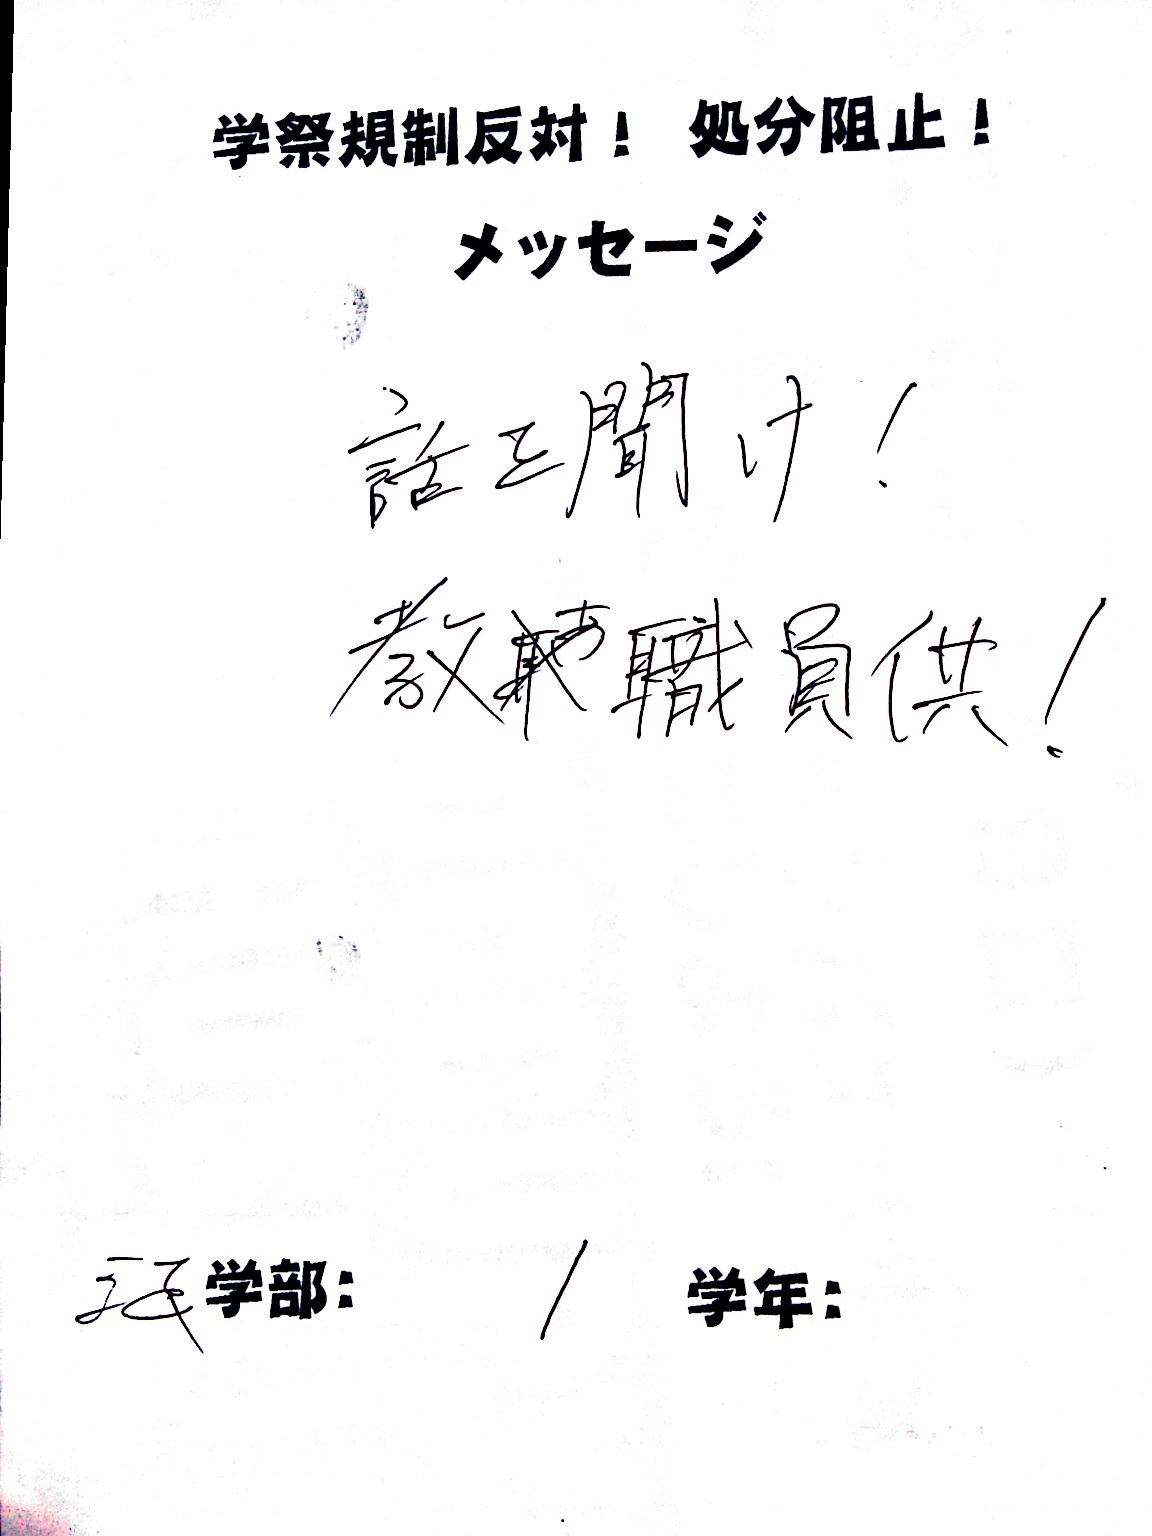 学祭規制反対! 処分阻止!
メッセージ
話を聞け!
教職員供!
学部: / 学年: